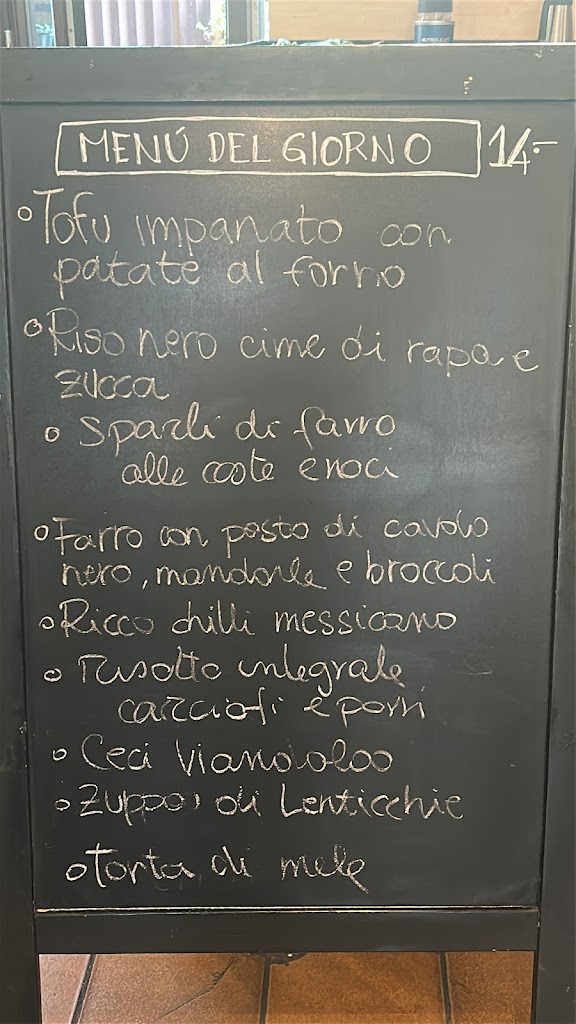 MENÚ DEL GIORNO 14.-
Tofu impanato con
patate al forno
Riso nero cime di rapa e
zucca
di farro
alle coste e noci
Farro con pesto di cavolo
nero, mandorle e broccoli
Ricco chilli messicano
Risotto integrale
carciofi e porri
Ceci
Zuppa di Lenticchie
Torta di mele